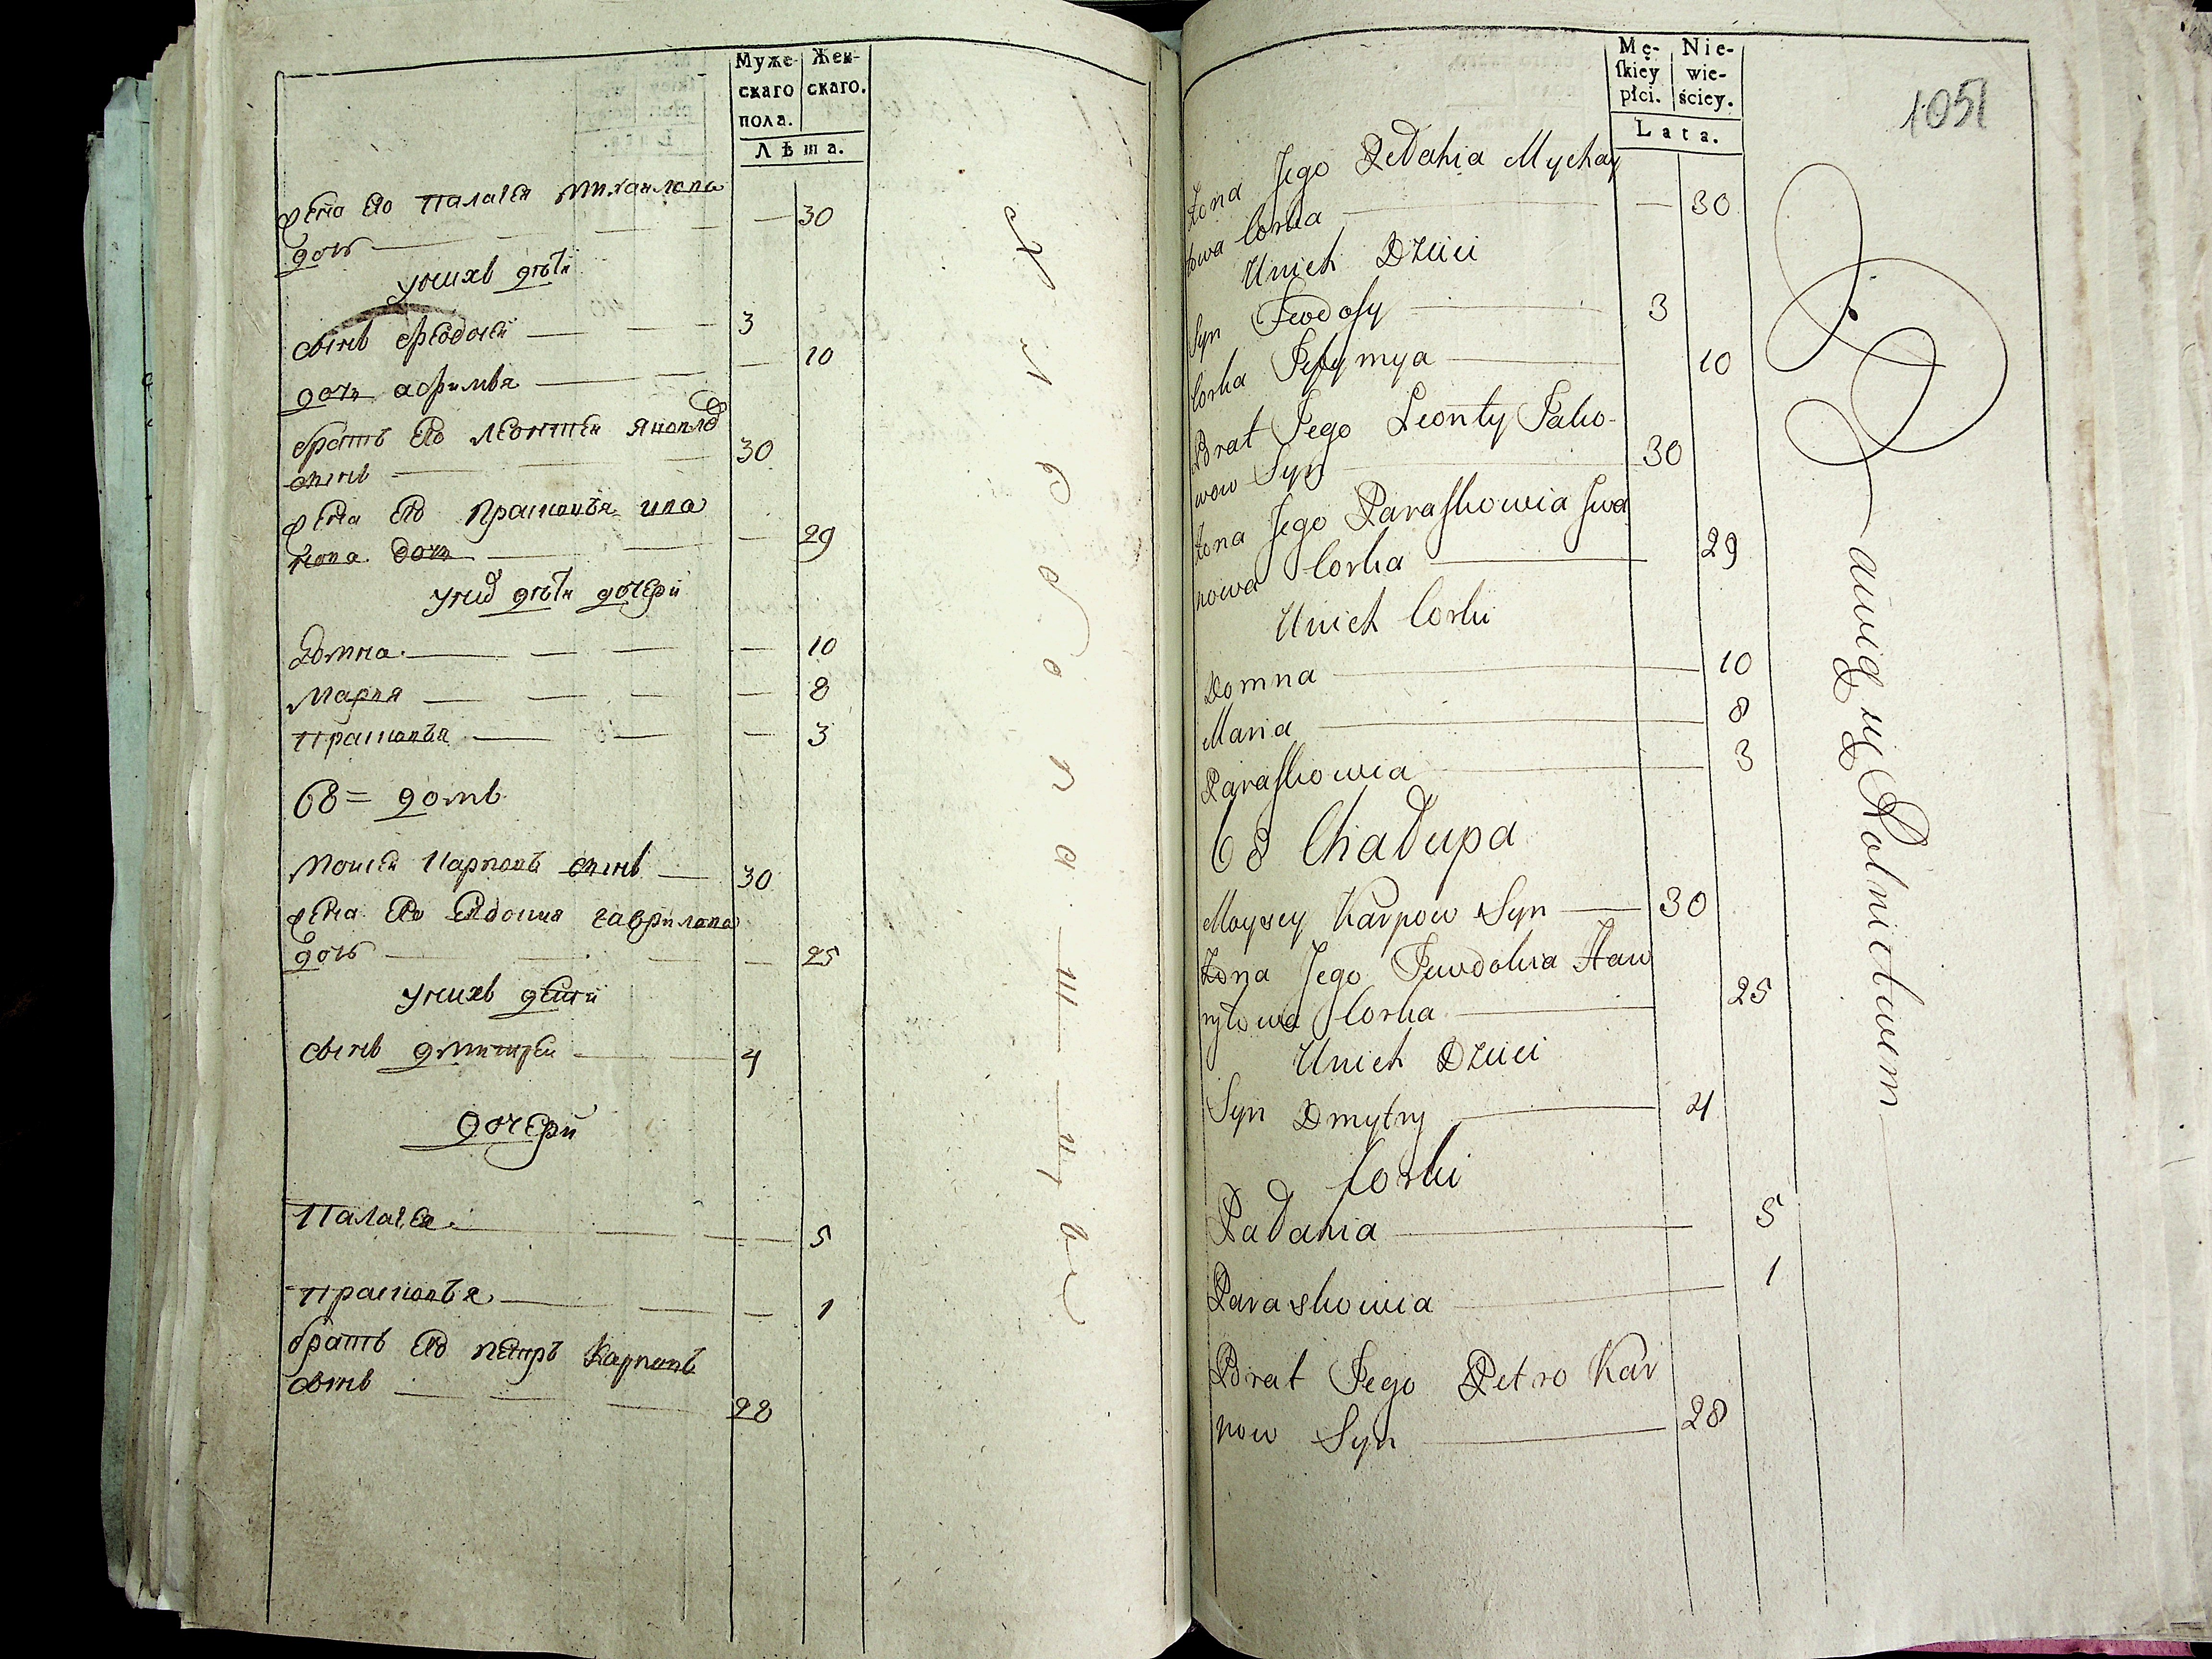 Муже-
скаго
пола.
Жен-
скаго.
Лѣта.
жена его палагея михаилова
дочь — 30
у нихъ дѣти
сынъ феодосей — 3
дочь афимья — 10
братъ его леонтей яковлевъ
сынъ — 30
жена его прасковья ива
нова дочь — 29
у нихъ дѣти дочери
домна — 10
Мария — 8
прасковья — 3
68 = домъ
Моисей Карповъ сынъ — 30
жена его Евдокия гаврилова
дочь — 25
у нихъ дети
сынъ дмитрей — 4
дочери
Палагея — 5
прасковья — 1
братъ его петръ Карповъ
сынъ — 28
Mę-
skiey
płci.
Nie-
wie-
ściey.
Lata.
1051
Żona Jego Pedahia Mychay
łowa Corka — 30
U nich Dzieci
Syn Fwdosy — 3
Corka Jefymya — 10
Brat Jego Leonty Jako-
wow Syn — 30
Żona Jego Paraskowia Iwa
nowa Corka — 29
U nich Corki
Domna — 10
Maria — 8
Paraskowia — 3
68 Chałupa
Moysey Karpow Syn — 30
Żona Jego Jewdokia Haw
ryłowa Corka — 25
U nich Dzieci
Syn Dmytry — 4
Corki
Pałahia — 5
Paraskowia — 1
Brat Jego Petro Kar
pow Syn — 28
Rolnictwem